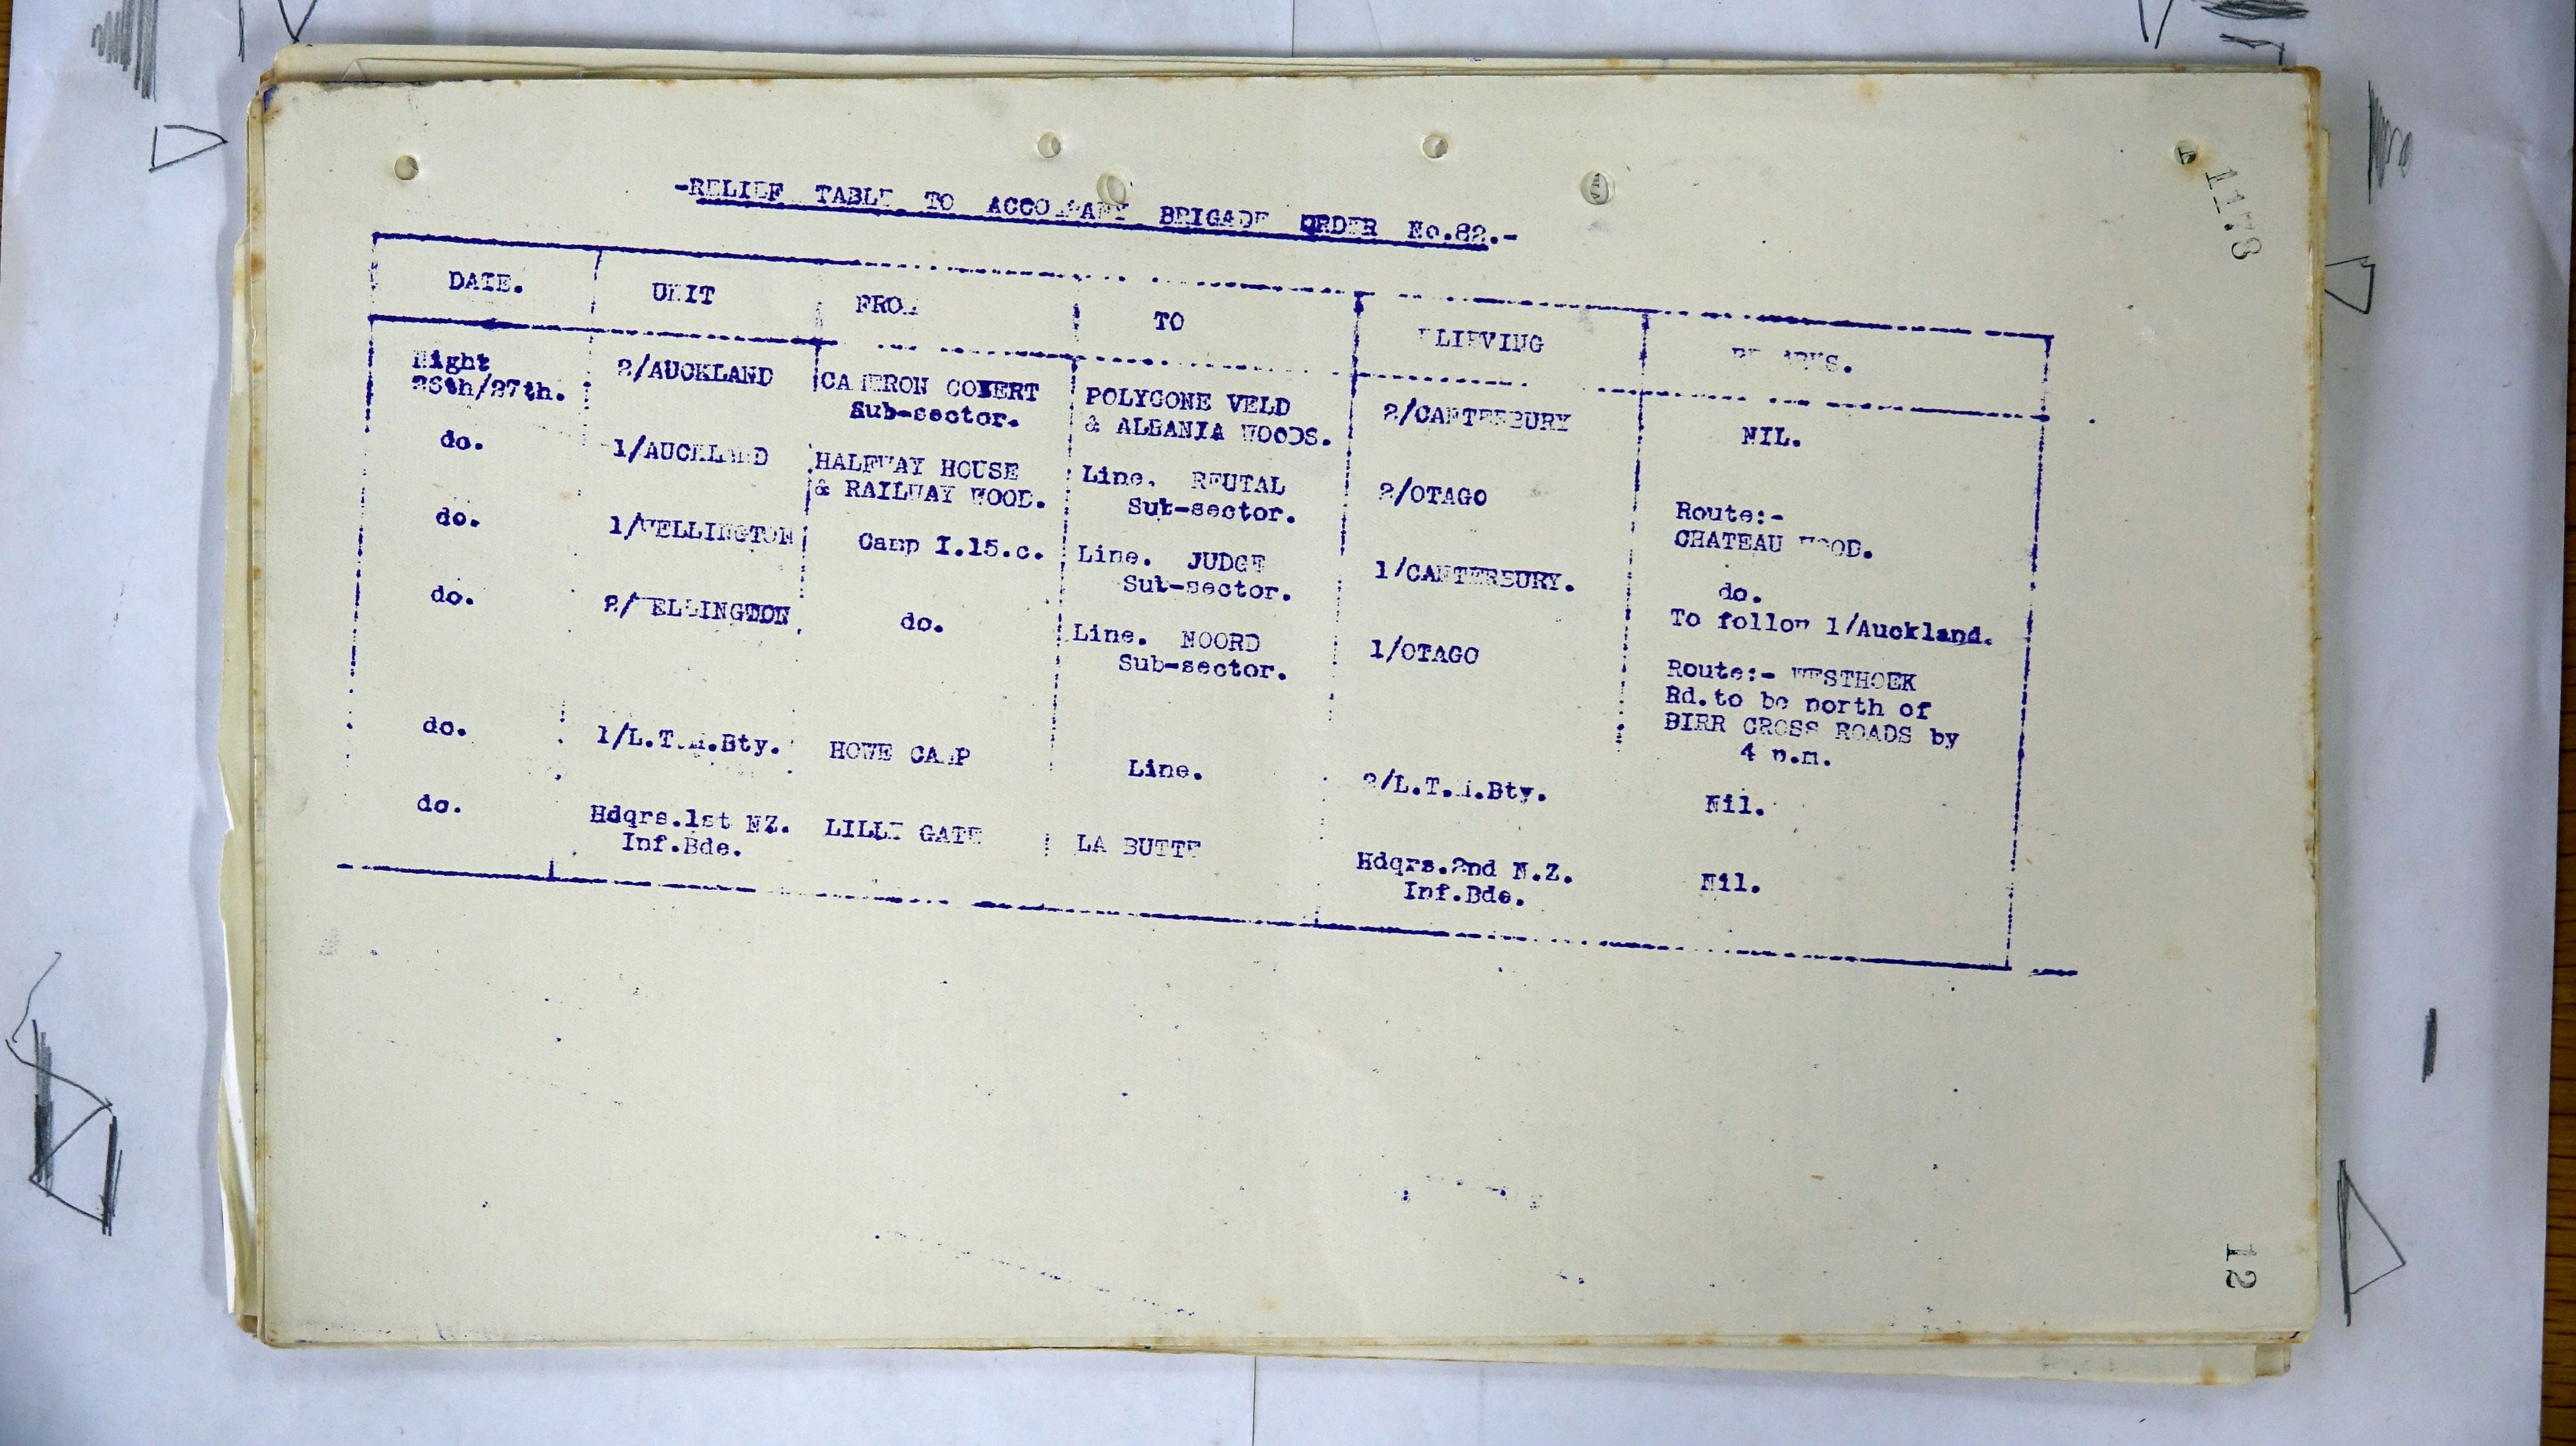 -RELIEF TABLE TO ACCOMPANY BRIGADE ORDER No.82.-
1178
DATE. UNIT FROM TO RELIEVING REMARKS.
Night 26th/27th. 2/AUCKLAND CAMERON COVERT Sub-sector. POLYGONE VELD & ALBANIA WOODS. 2/CANTERBURY NIL.
do. 1/AUCKLAND HALFWAY HOUSE & RAILWAY WOOD. Line. REUTAL Sub-sector. 2/OTAGO Route:- CHATEAU WOOD.
do. 1/WELLINGTON Camp I.15.c. Line. JUDGE Sub-sector. 1/CANTERBURY. do. To follow 1/Auckland.
do. 2/WELLINGTON do. Line. NOORD Sub-sector. 1/OTAGO Route:- WESTHOEK Rd.to be north of BIRR CROSS ROADS by 4 p.m.
do. 1/L.T.M.Bty. HOWE CAMP Line. 2/L.T.M.Bty. Nil.
do. Hdqrs.1st NZ. Inf.Bde. LILLE GATE LA BUTTE Hdqrs.2nd N.Z. Inf.Bde. Nil.
12